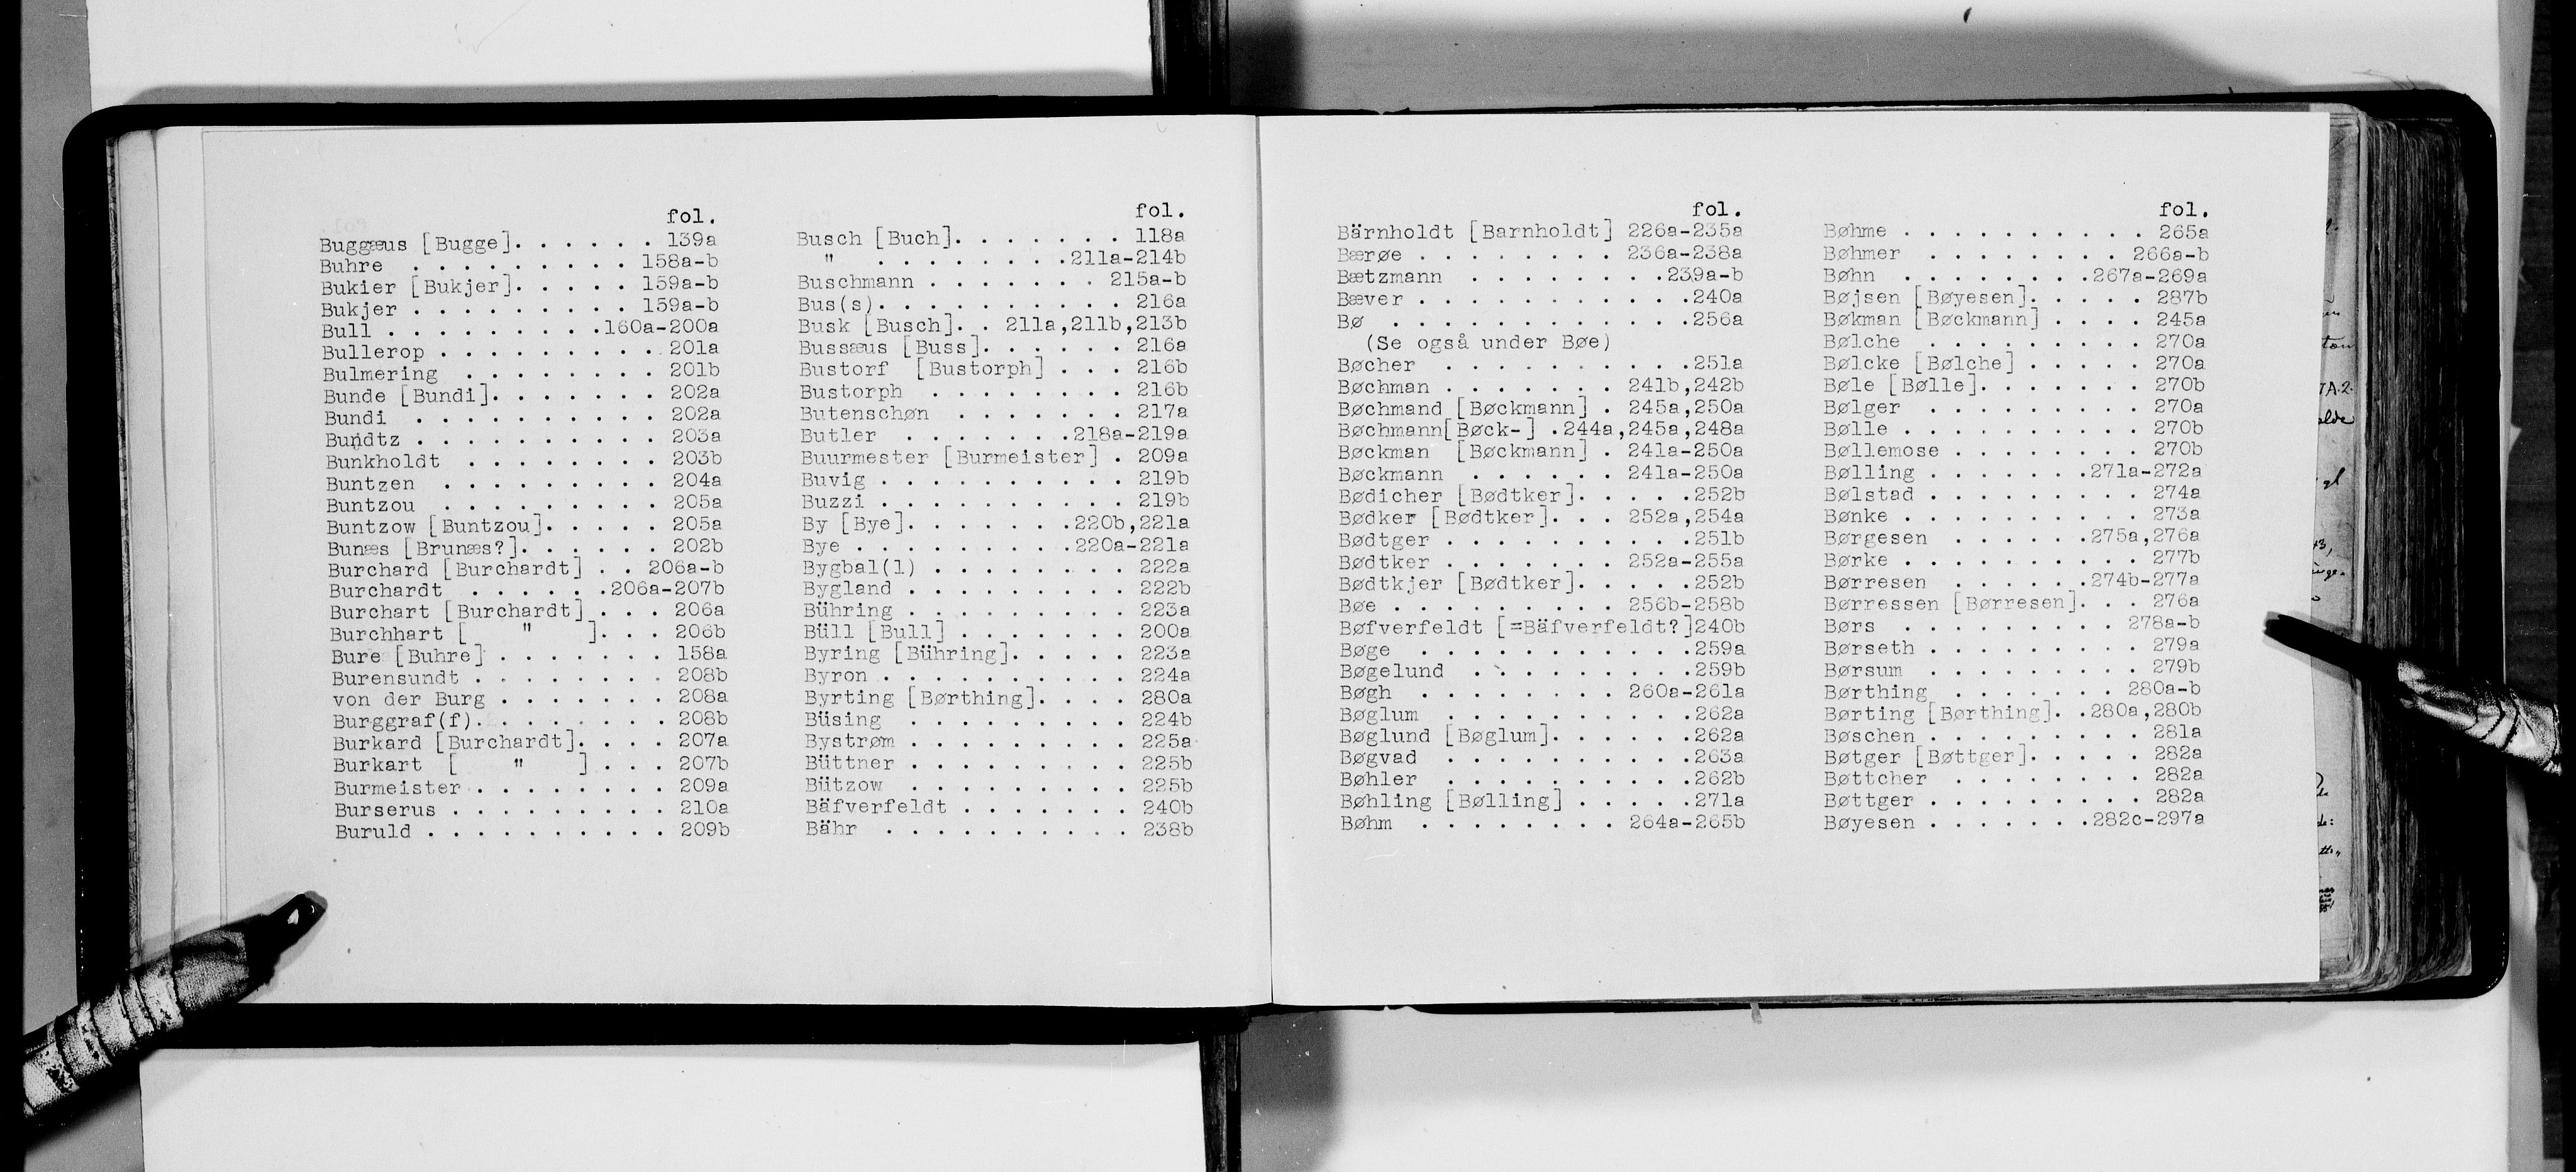 fol.
Buggæus [Bugge]. . . . . . 139a
Buhre . . . . . . . . . 158a-b
Bukier [Bukjer]. . . . . 159a-b
Bukjer . . . . . . . . . 159a-b
Bull . . . . . . . . .160a-200a
Bullerop . . . . . . . . . 201a
Bulmering . . . . . . . . 201b
Bunde [Bundi]. . . . . . . 202a
Bundi . . . . . . . . . . 202a
Bundtz . . . . . . . . . . 203a
Bunkholdt . . . . . . . . 203b
Buntzen . . . . . . . . . 204a
Buntzou . . . . . . . . . 205a
Buntzow [Buntzou]. . . . . 205a
Bunæs [Brunæs?]. . . . . . 202b
Burchard [Burchardt] . . 206a-b
Burchardt . . . . . .206a-207b
Burchart [Burchardt] . . . 206a
Burchhart [ " ]. . . 206b
Bure [Buhre] . . . . . . . 158a
Burensundt . . . . . . . . 208b
von der Burg . . . . . . . 208a
Burggraf(f). . . . . . . . 208b
Burkard [Burchardt]. . . . 207a
Burkart [ " ] . . . 207b
Burmeister . . . . . . . . 209a
Burserus . . . . . . . . . 210a
Buruld . . . . . . . . . . 209b
fol.
Busch [Buch]. . . . . . . 118a
" . . . . . . . .211a-214b
Buschmann . . . . . . . 215a-b
Bus(s). . . . . . . . . . 216a
Busk [Busch]. . 211a,211b,213b
Bussæus [Buss]. . . . . . 216a
Bustorf [Bustorph] . . . 216b
Bustorph . . . . . . . . 216b
Butenschøn . . . . . . . 217a
Butler . . . . . . .218a-219a
Buurmester [Burmeister] . 209a
Buvig . . . . . . . . . . 219b
Buzzi . . . . . . . . . . 219b
By [Bye]. . . . . . .220b,221a
Bye . . . . . . . . .220a-221a
Bygbal(l) . . . . . . . . 222a
Bygland . . . . . . . . . 222b
Bühring . . . . . . . . . 223a
Büll [Bull] . . . . . . . 200a
Byring [Bühring]. . . . . 223a
Byron . . . . . . . . . . 224a
Byrting [Børthing]. . . . 280a
Büsing . . . . . . . . . 224b
Bystrøm . . . . . . . . . 225a
Büttner . . . . . . . . . 225b
Bützow . . . . . . . . . 225b
Bäfverfeldt . . . . . . . 240b
Bähr . . . . . . . . . . 238b
fol.
Bärnholdt [Barnholdt] 226a-235a
Bærøe . . . . . . . . 236a-238a
Bætzmann . . . . . . . .239a-b
Bæver . . . . . . . . . . .240a
Bø . . . . . . . . . . . .256a
(Se også under Bøe)
Bøcher . . . . . . . . . .251a
Bøchman . . . . . . . 241b,242b
Bøchmand [Bøckmann] . 245a,250a
Bøchmann[Bøck-] .244a,245a,248a
Bøckman [Bøckmann] . 241a-250a
Bøckmann . . . . . . 241a-250a
Bødicher [Bødtker]. . . . .252b
Bødker [Bødtker]. . . 252a,254a
Bødtger . . . . . . . . . .251b
Bødtker . . . . . . . 252a-255a
Bødtkjer [Bødtker]. . . . .252b
Bøe . . . . . . . . . 256b-258b
Bøfverfeldt [=Bäfverfeldt?]240b
Bøge . . . . . . . . . . .259a
Bøgelund . . . . . . . . .259b
Bøgh . . . . . . . . 260a-261a
Bøglum . . . . . . . . . .262a
Bøglund [Bøglum]. . . . . .262a
Bøgvad . . . . . . . . . .263a
Bøhler . . . . . . . . . .262b
Bøhling [Bølling] . . . . .271a
Bøhm . . . . . . . . 264a-265b
fol.
Bøhme . . . . . . . . . . 265a
Bøhmer . . . . . . . . 266a-b
Bøhn . . . . . . . .267a-269a
Bøjsen [Bøyesen]. . . . . 287b
Bøkman [Bøckmann] . . . . 245a
Bølche . . . . . . . . . 270a
Bølcke [Bølche] . . . . . 270a
Bøle [Bølle]. . . . . . . 270b
Bølger . . . . . . . . . 270a
Bølle . . . . . . . . . . 270b
Bøllemose . . . . . . . . 270b
Bølling . . . . . . .271a-272a
Bølstad . . . . . . . . . 274a
Bønke . . . . . . . . . . 273a
Børgesen . . . . . .275a,276a
Børke . . . . . . . . . . 277b
Børresen . . . . . .274b-277a
Børressen [Børresen]. . . 276a
Børs . . . . . . . . . 278a-b
Børseth . . . . . . . . . 279a
Børsum . . . . . . . . . 279b
Børthing . . . . . . . 280a-b
Børting [Børthing]. .280a,280b
Bøschen . . . . . . . . . 281a
Bøtger [Bøttger]. . . . . 282a
Bøttcher . . . . . . . . 282a
Bøttger . . . . . . . . . 282a
Bøyesen . . . . . . .282c-297a